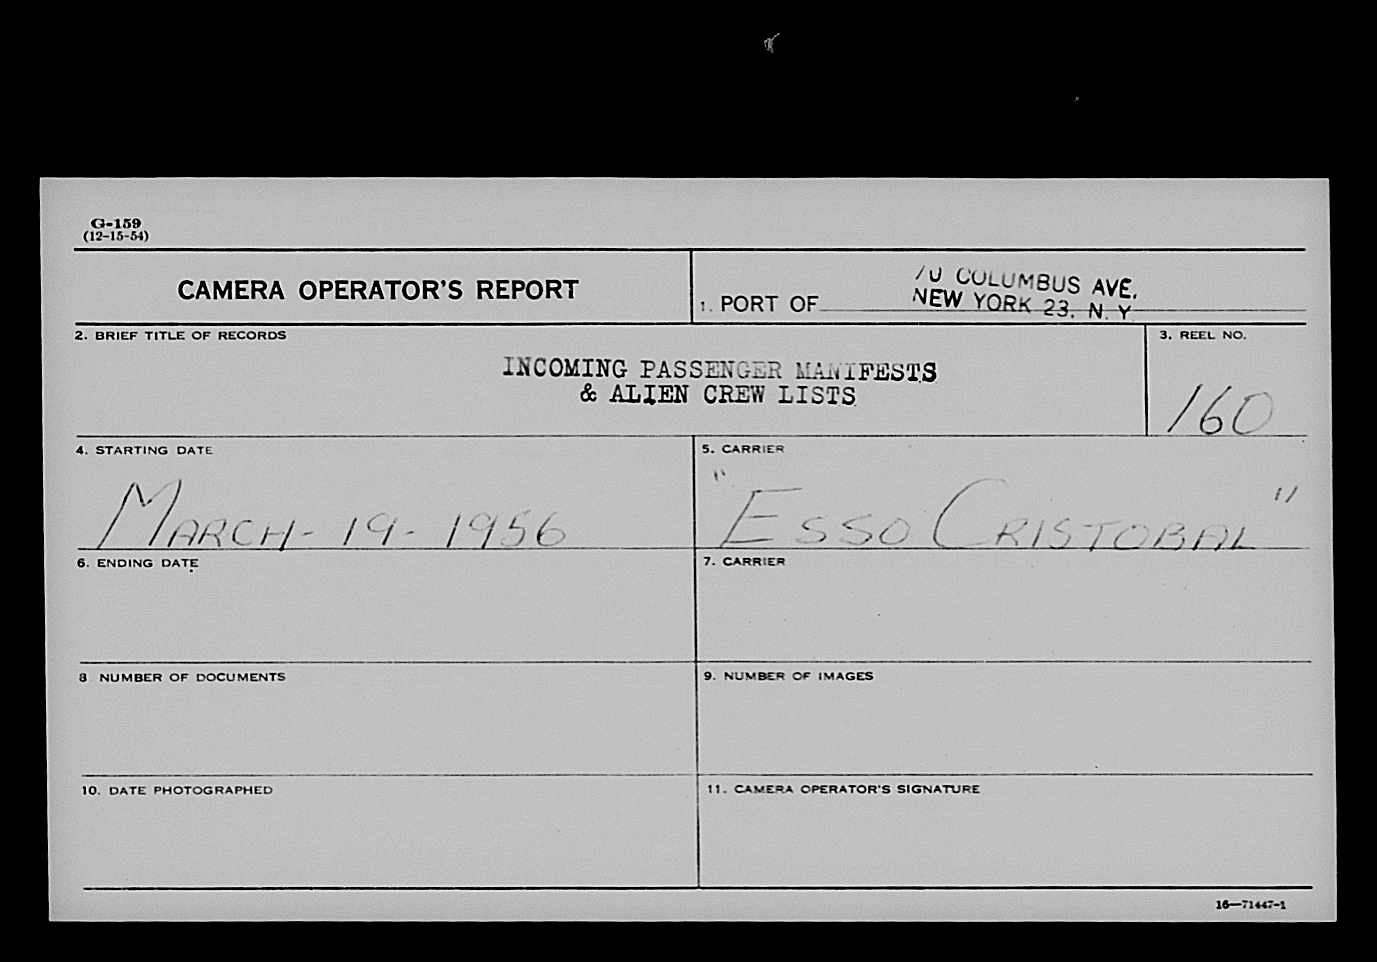 G-159
(12-15-54)
CAMERA OPERATOR'S REPORT
1. PORT OF
70 COLUMBUS AVE.
NEW YORK 23, N. Y.
2. BRIEF TITLE OF RECORDS
INCOMING PASSENGER MANIFESTS
& ALIEN CREW LISTS
3. REEL NO.
160
4. STARTING DATE
MARCH-19-1956
5. CARRIER
"ESSO CRISTOBAL"
6. ENDING DATE
7. CARRIER
8 NUMBER OF DOCUMENTS
9. NUMBER OF IMAGES
10. DATE PHOTOGRAPHED
11. CAMERA OPERATOR'S SIGNATURE
16—71447-1